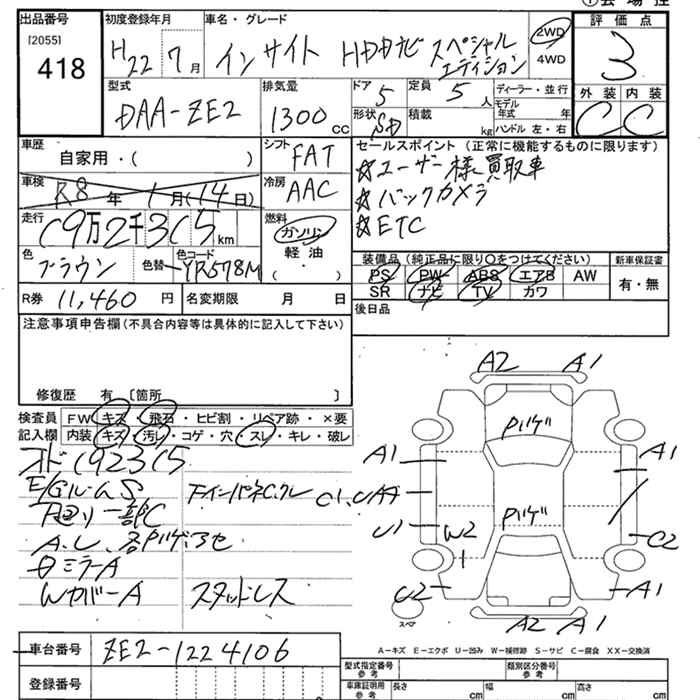 出品番号
[2055]
418
初度登録年月
H22 7月
車名・グレード
インサイト HDDナビ スペシャル
エディション
2WD
4WD
評価点
3
外装 内装
C C
型式
DAA-ZE2
排気量
1300 CC
ドア
5
定員
5 人
形状
5D
積載
kg
ディーラー・並行
モデル
年式 年
ハンドル 左・右
車歴
自家用・( )
シフト
FAT
車検
R8年 1月(14日)
冷房
AAC
走行
(9万2千3(5 km
燃料
ガソリン
軽油
( )
色
ブラウン
色替
色コード
YR578M
セールスポイント (正常に機能するものに限ります)
☆ユーザー様買取車
☆バックカメラ
☆ETC
装備品 (純正品に限り○をつけてください)
PS PW ABS エアB AW
SR ナビ TV カワ
新車保証書
有・無
R券 11,460 円
名変期限 月 日
後日品
注意事項申告欄(不具合内容等は具体的に記入して下さい)
修復歴 有 〔箇所 〕
検査員
記入欄
FW キズ・飛石・ヒビ割・リペア跡・×要
内装 キズ・汚レ・コゲ・穴・スレ・キレ・破レ
オド(923(5
E/GルームS
下インパネCクレ
A.C.各Pハゲ.アセ
ミラーA
WカバーA
スタッドレス
A2 A1
Pハゲ
A1
A1
Pハゲ
U1
W2
C2
U2
A1
スペア
A2 A1
A-キズ E-エクボ U-凹み W-補修跡 S-サビ C-腐食 XX-交換済
車台番号
ZE2-1224106
登録番号
型式指定番号
参考
類別区分番号
参考
車庫証明用
参考
長さ cm
幅 cm
高さ cm